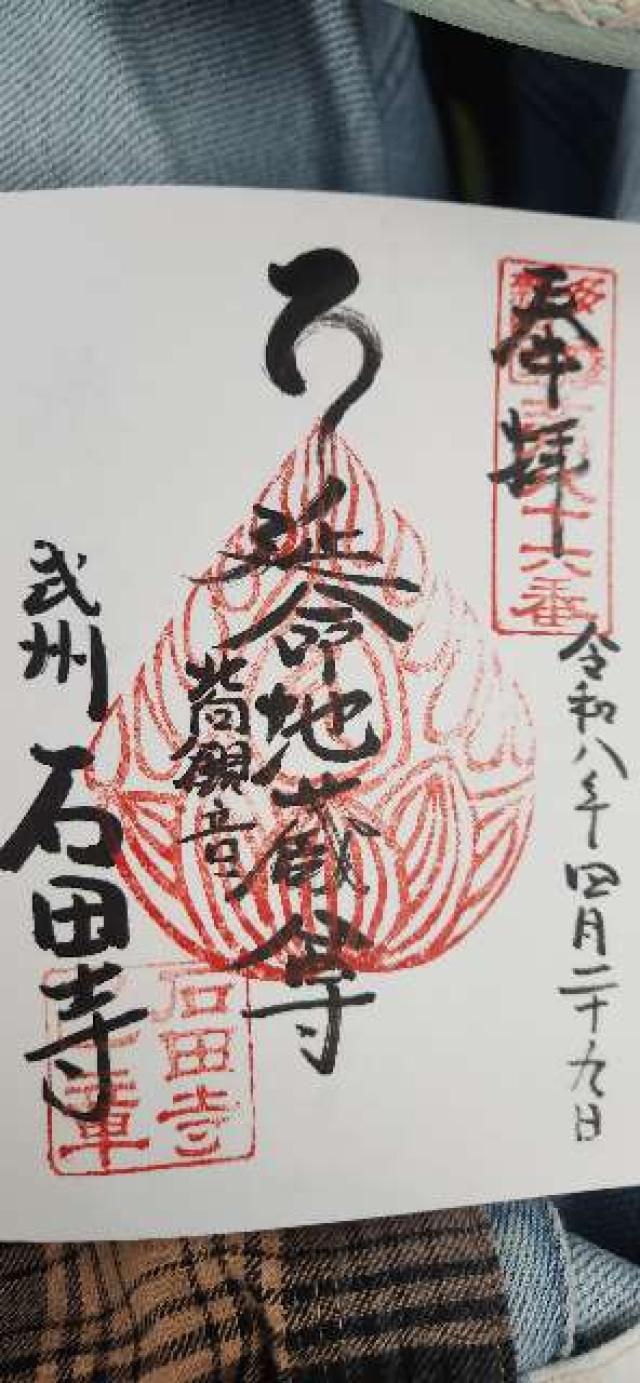 奉拝
十六番
令和八年四月二十九日
延命地蔵尊
武州
石田寺
石田寺